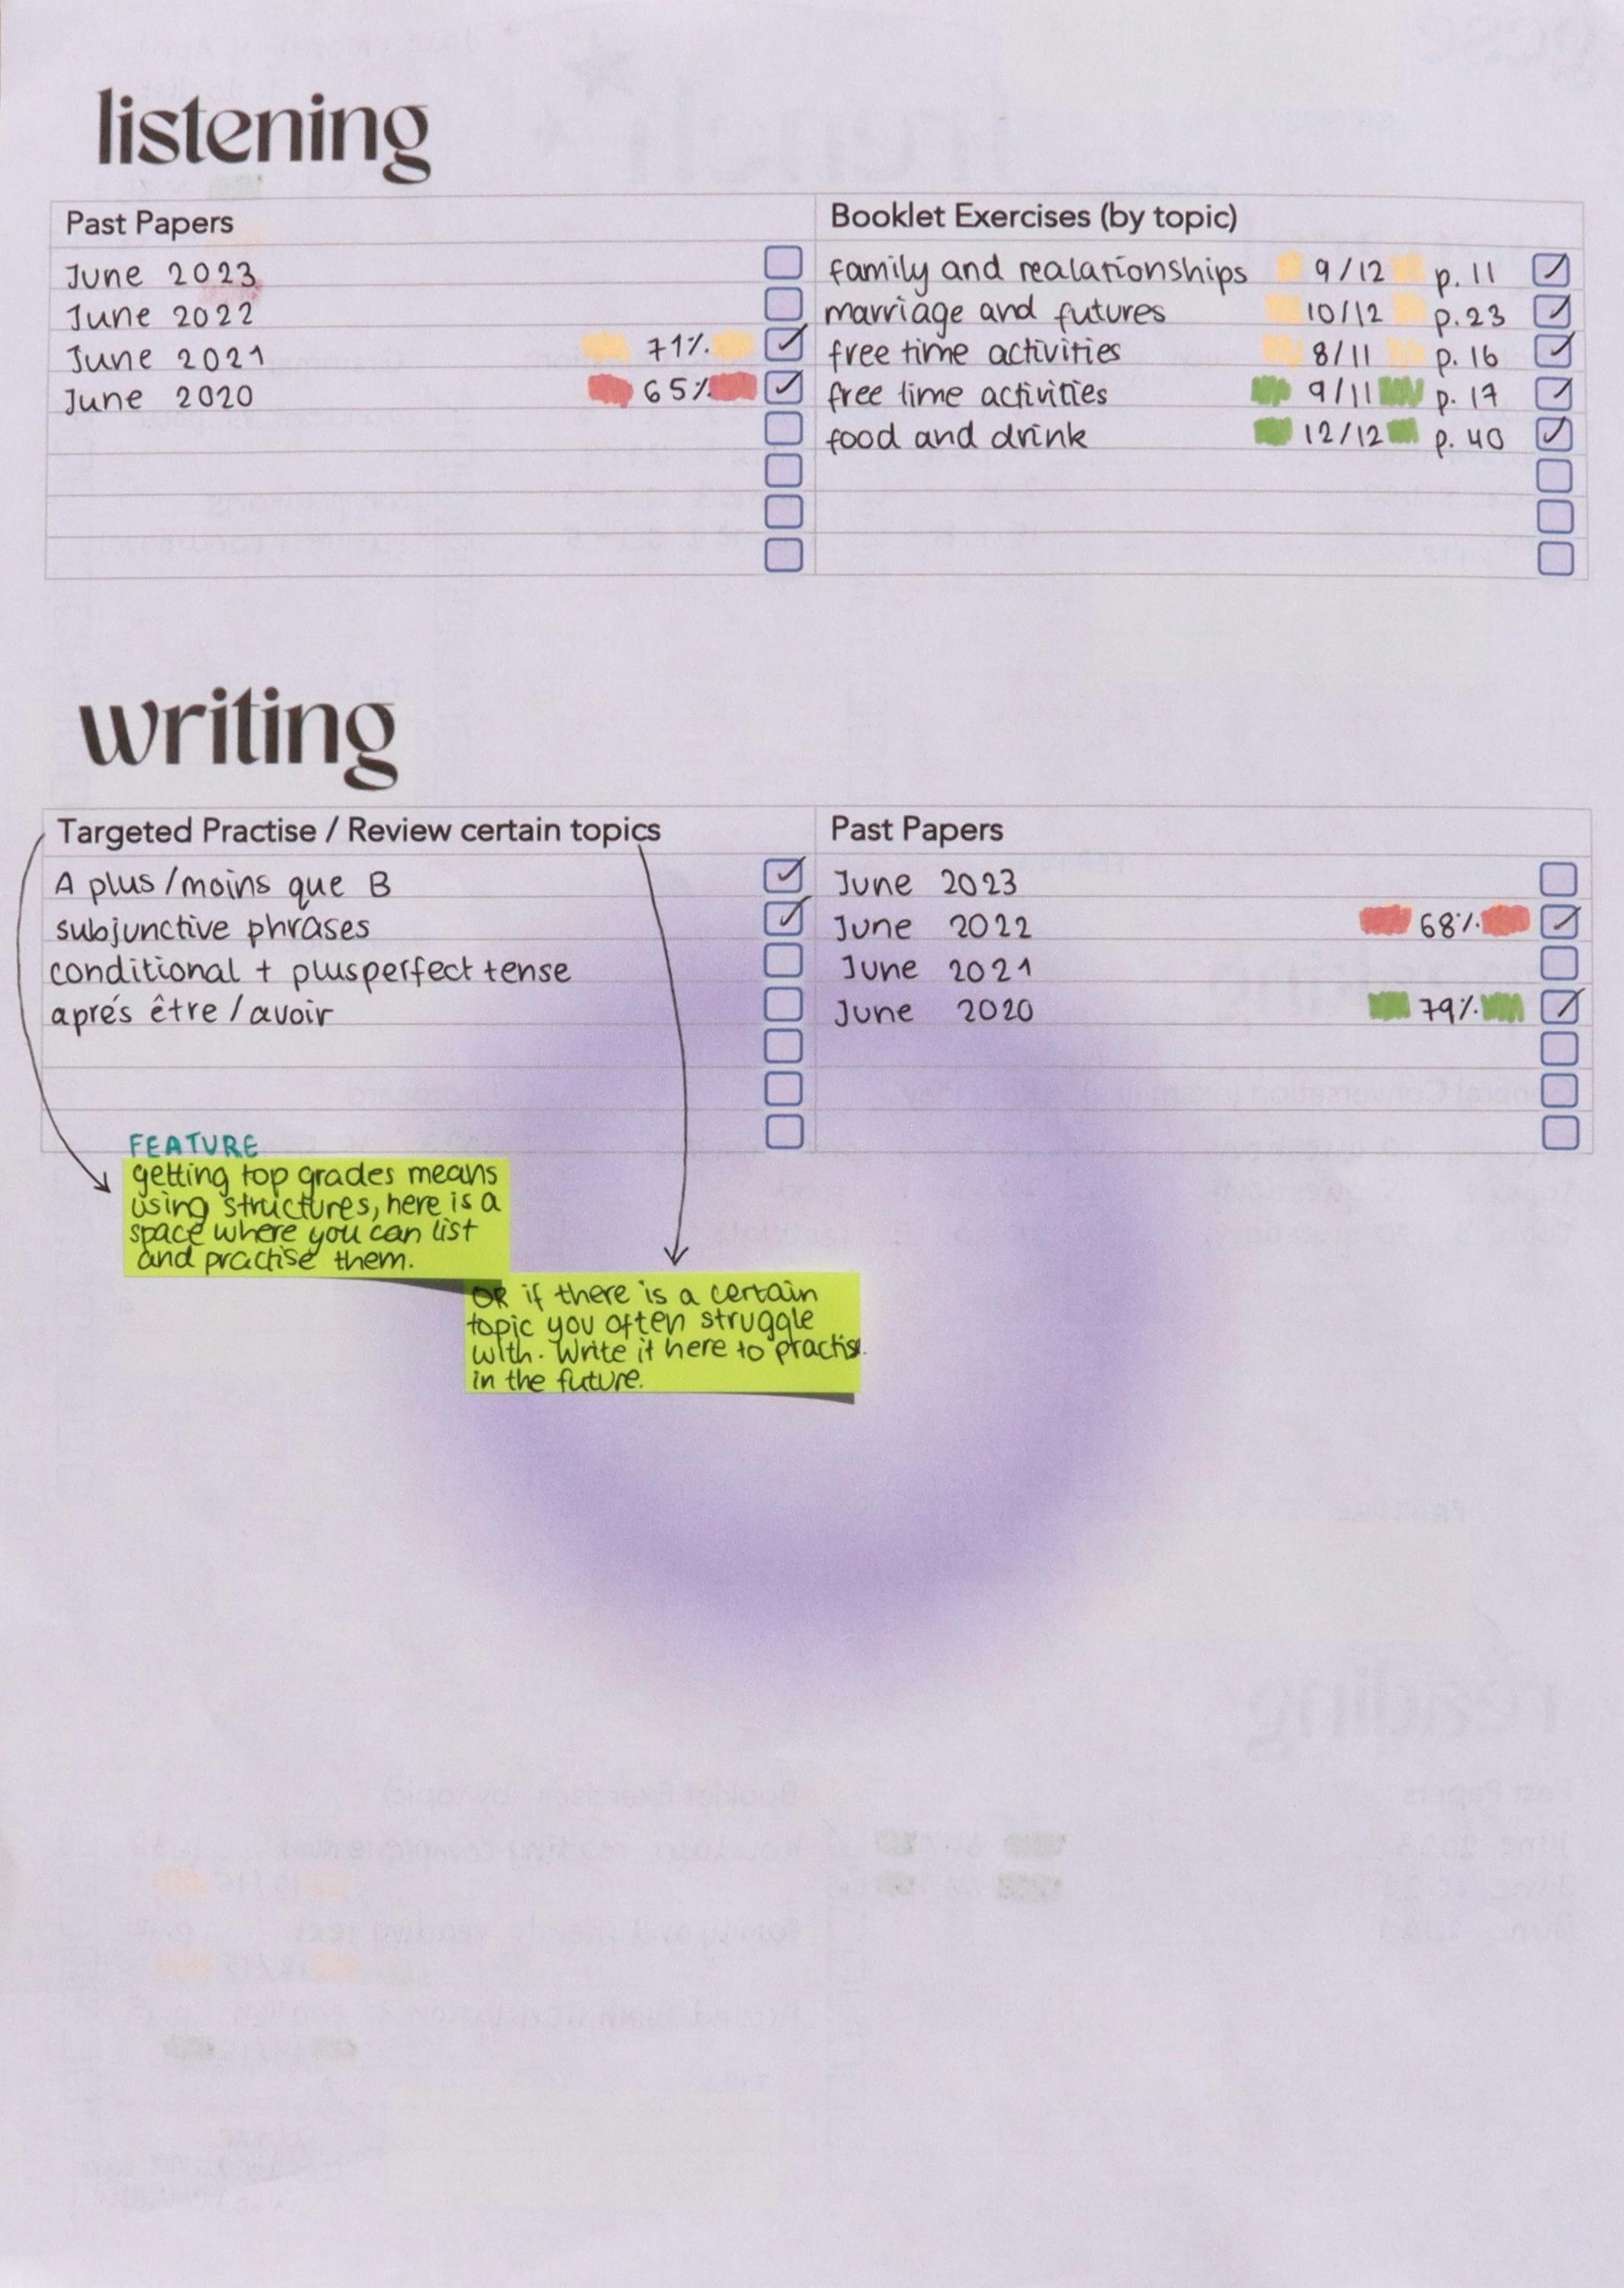 listening
Past Papers
June 2023
June 2022
June 2021 71%
June 2020 65%
Booklet Exercises (by topic)
family and realationships 9/12 p. 11
marriage and futures 10/12 p. 23
free time activities 8/11 p. 16
free time activities 9/11 p. 17
food and drink 12/12 p. 40
writing
Targeted Practise / Review certain topics
A plus/moins que B
subjunctive phrases
conditional + plusperfect tense
aprés être / avoir
Past Papers
June 2023
June 2022 68%
June 2021
June 2020 79%
FEATURE
getting top grades means
using structures, here is a
space where you can list
and practise them.
OR if there is a certain
topic you often struggle
with. Write it here to practise
in the future.